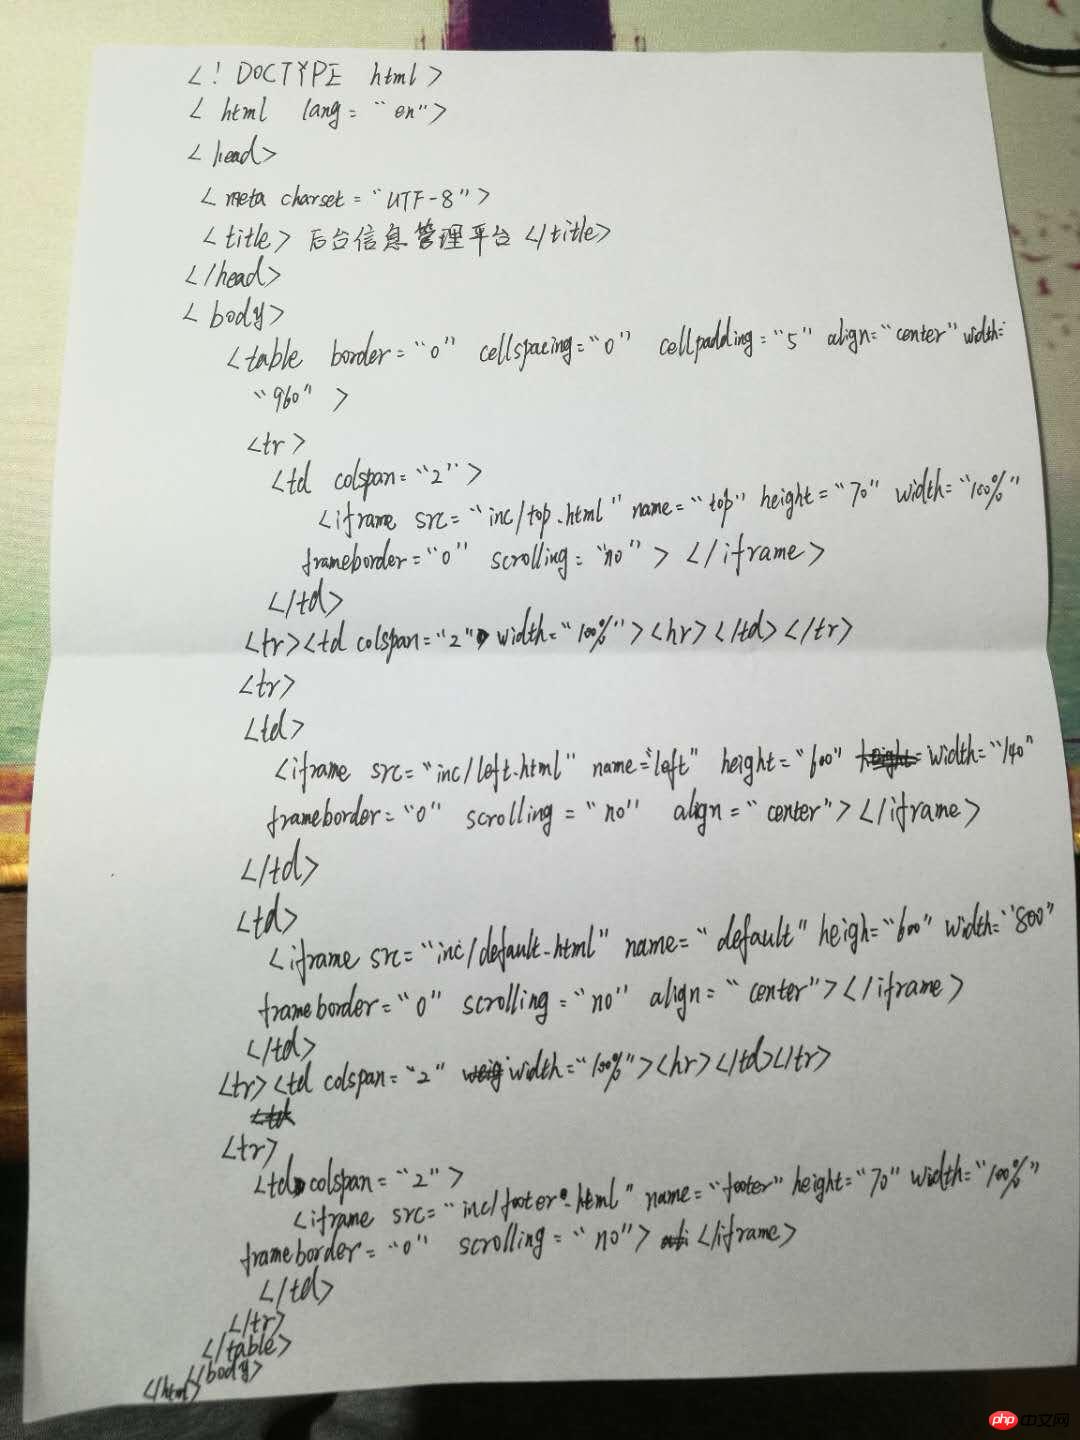 <! DOCTYPE html>
< html lang = "en">
< head>
< meta charset = "UTF-8">
<title> 后台信息管理平台 </title>
</head>
< body>
<table border = "0" cellspacing = "0" cellpadding = "5" align = "center" width =
"960" >
<tr>
<td colspan = "2">
<iframe src = "inc/top.html" name = "top" height = "70" width = "100%"
frameborder = "0" scrolling = "no" > </iframe>
</td>
<tr><td colspan = "2" width = "100%"><hr></td></tr>
<tr>
<td>
<iframe src = "inc/left.html" name = "left" height = "600" width = "140"
frameborder = "0" scrolling = "no" align = "center"></iframe>
</td>
<td>
<iframe src = "inc/default.html" name = "default" heigh = "600" width = "800"
frameborder = "0" scrolling = "no" align = "center"></iframe>
</td>
<tr><td colspan = "2" width = "100%"><hr></td></tr>
<tr>
<td colspan = "2">
<iframe src = "inc/footer.html" name = "footer" height = "70" width = "100%"
frameborder = "0" scrolling = "no"> </iframe>
</td>
</tr>
</table>
</body>
</html>
php 中文网